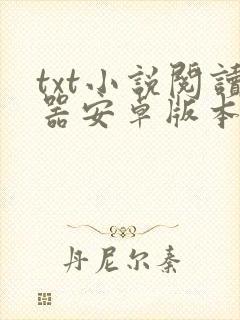 txt小說閱讀
器安卓版本
丹尼尔秦